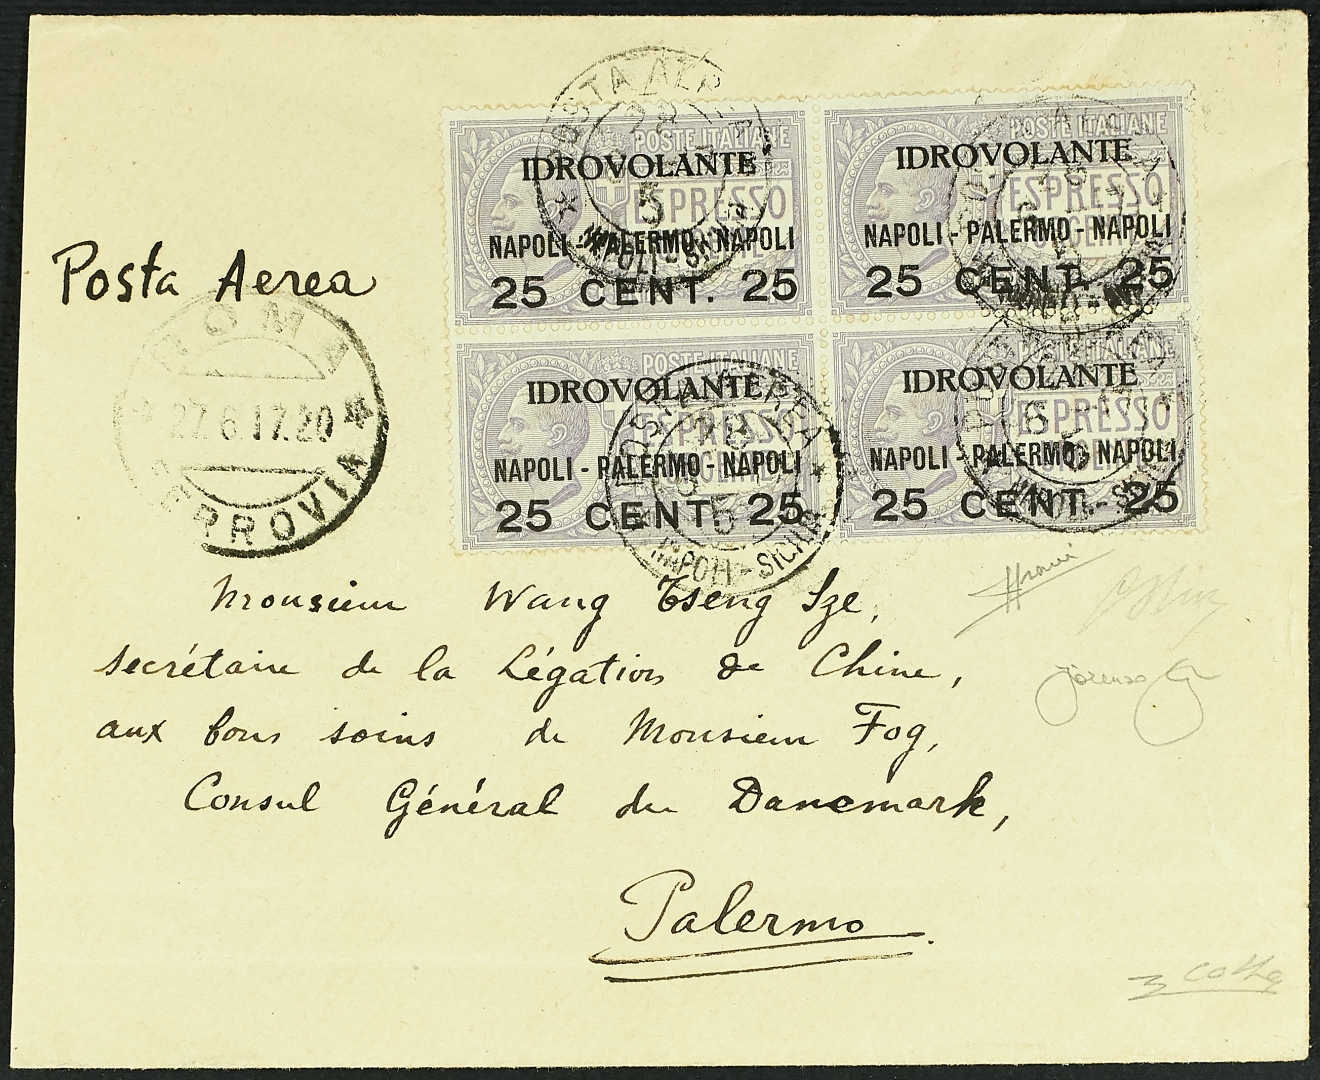 POSTE ITALIANE
ESPRESSO
IDROVOLANTE
NAPOLI - PALERMO - NAPOLI
25 CENT. 25
POSTE ITALIANE
ESPRESSO
IDROVOLANTE
NAPOLI - PALERMO - NAPOLI
25 CENT. 25
POSTE ITALIANE
ESPRESSO
IDROVOLANTE
NAPOLI - PALERMO - NAPOLI
25 CENT. 25
POSTE ITALIANE
ESPRESSO
IDROVOLANTE
NAPOLI - PALERMO - NAPOLI
25 CENT. 25
POSTA AEREA
NAPOLI - SICILIA
Posta Aerea
ROMA
27.6.17.20
FERROVIA
Monsieur Wang Tseng Sze,
secrétaire de la Légation de Chine,
aux bons soins de Monsieur Fog,
Consul Général du Danemark,
Palermo